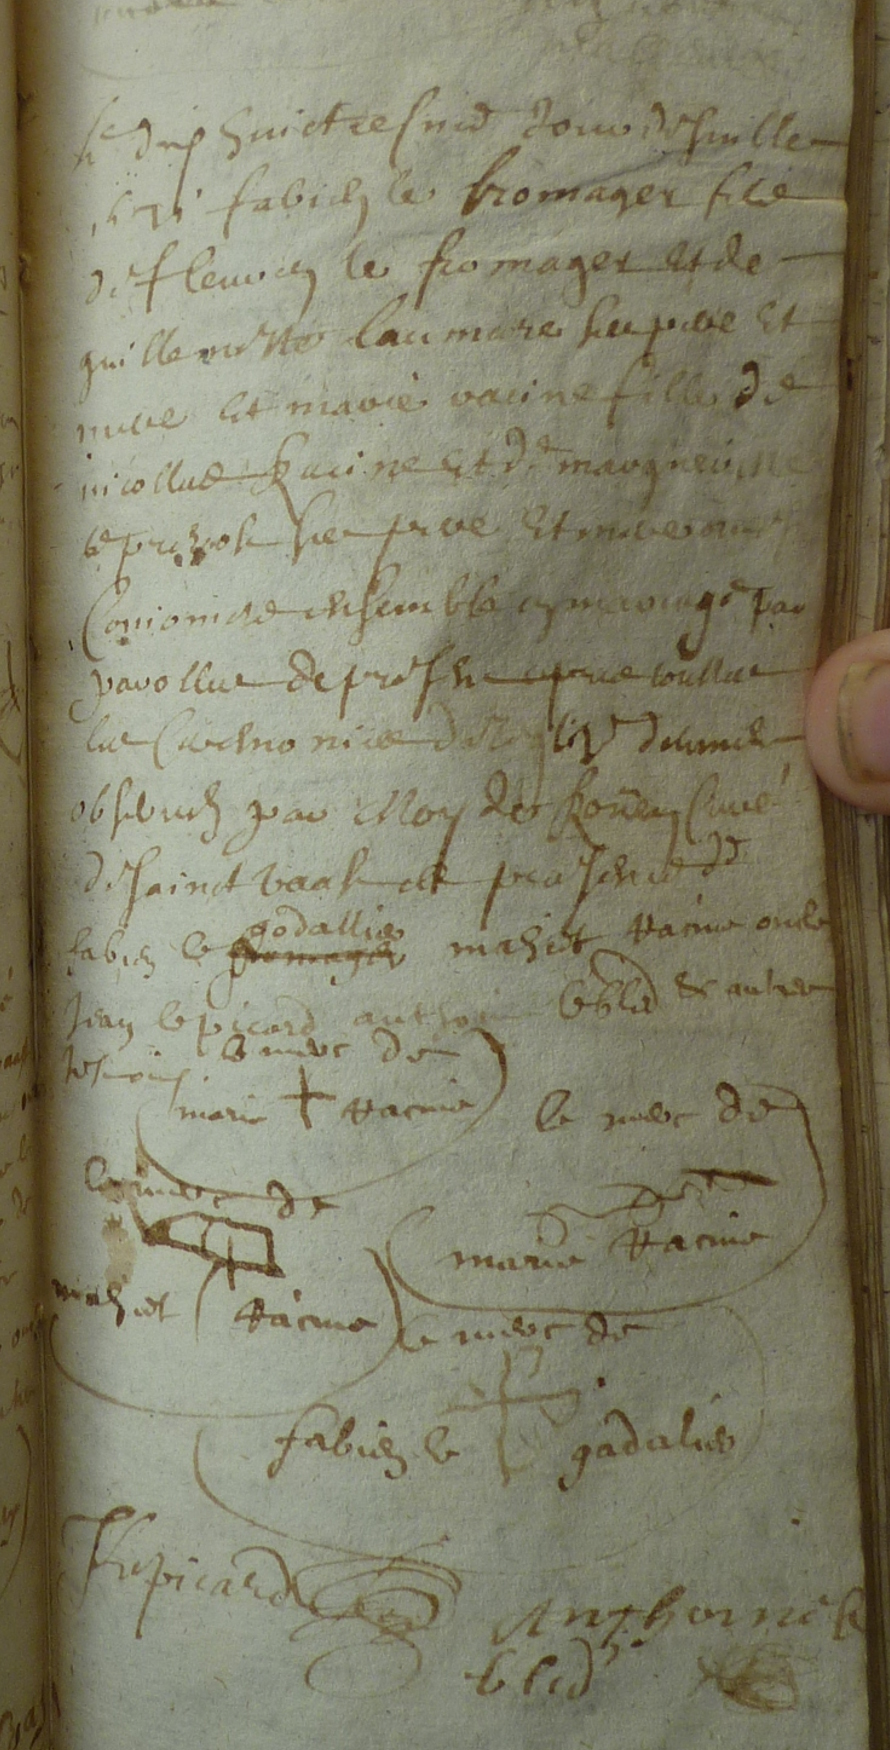 Le dix huictiesme Jour de Juille
1671 fabien le fromager filz
de fleurien le fromager et de
guillemette laumosne ses pere et
mere et marie racine fille de
nicollas Racine et de margueritte
le prevost ses pere et mere ont
Conioincts ensemble en mariage par
parolles de present
les Ceremonies de leglise
observees par Moy de Roüen Curé
de sainct vaast es presences de
fabien le godallier mahiet Racine oncle
Jean lepicard anthoine lebled & autres
tesmoings
le merc de
marie Racine
le merc de
marie Racine
le merc de
mahiet Racine
le merc de
fabien le godalier
J lepicard
Anthoine le
bled